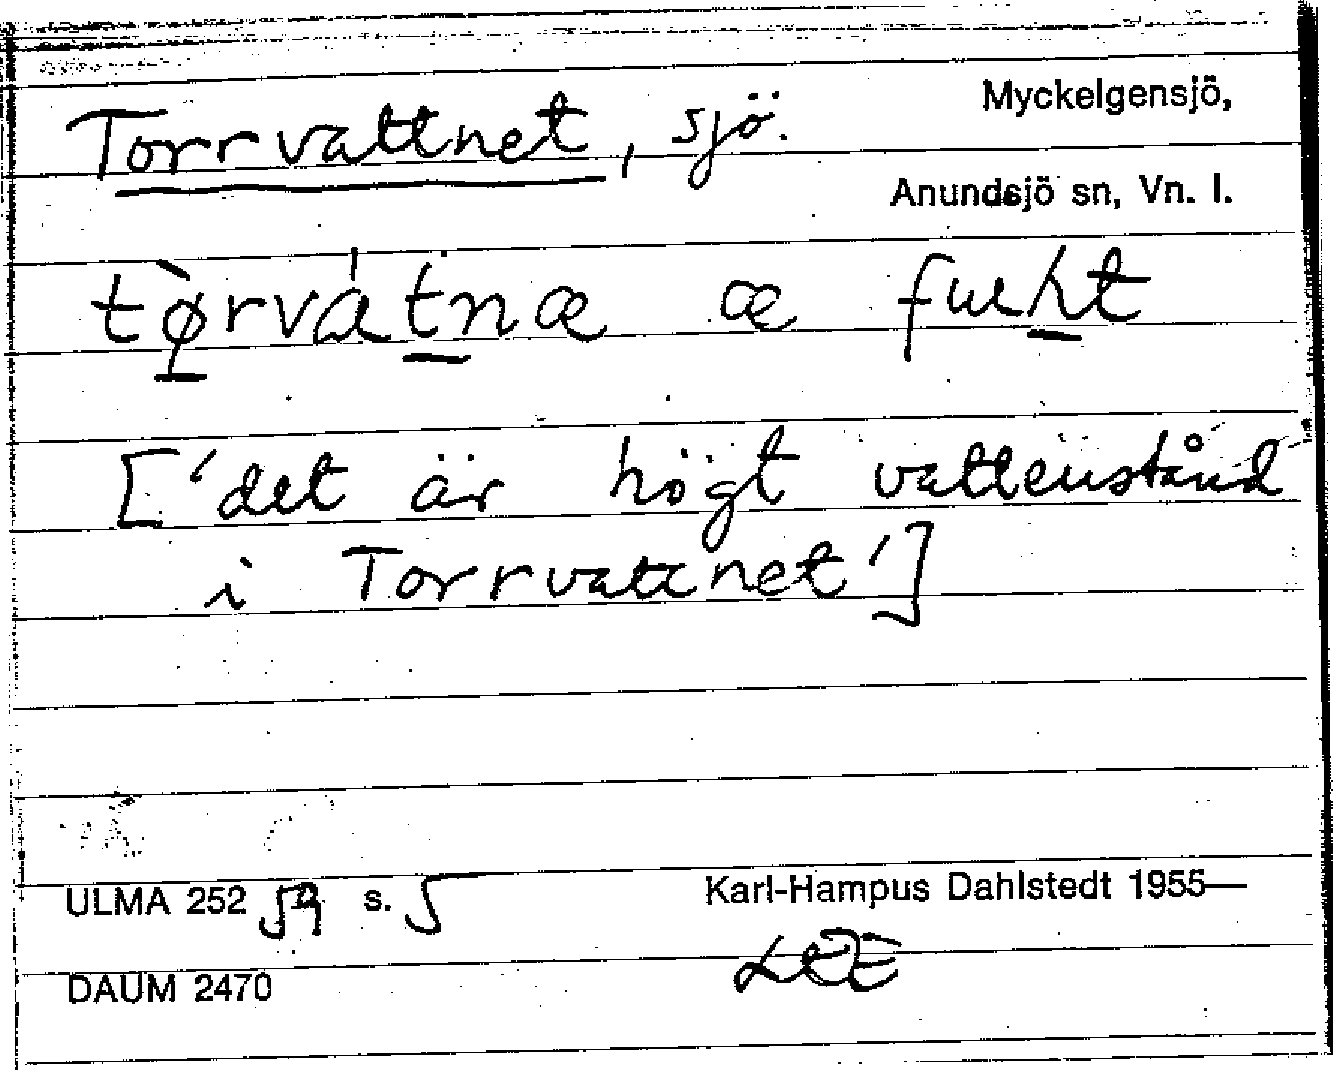 Torrvattnet, sjö.
Myckelgensjö,
Anundsjö sn, Vn. l.
tø̠̀rvát̠næ æ fuh̠t
['det är högt vattenstånd
i Torrvattnet']
ULMA 252 59 s. 5
Karl-Hampus Dahlstedt 1955—
DAUM 2470